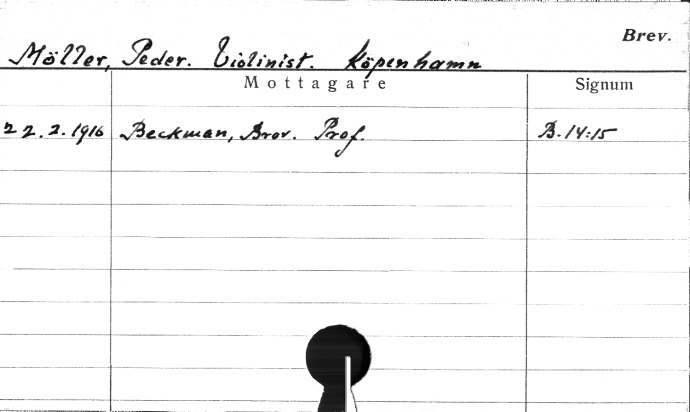 Brev.
Möller, Peder. Violinist. Köpenhamn
Mottagare Signum
22.2.1916 Beckman, Brov. Prof. B.14:15